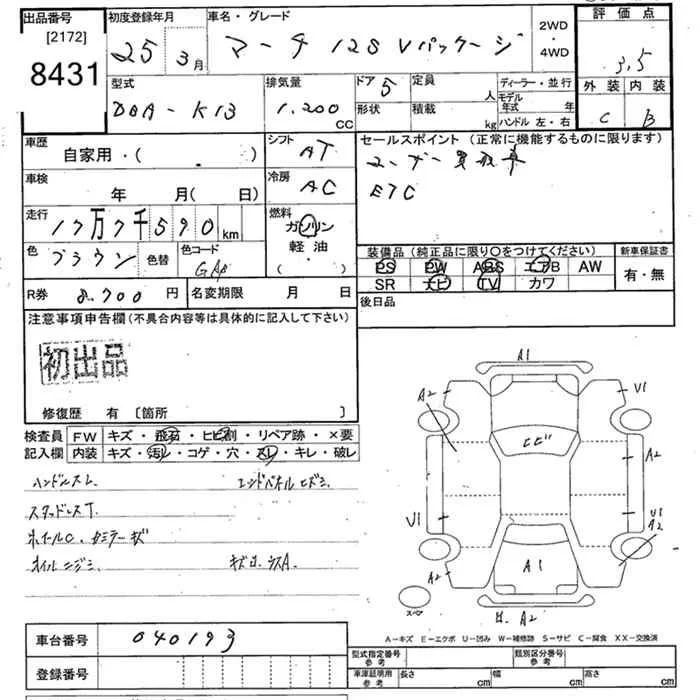 出品番号
[2172]
8431
初度登録年月
25 3月
車名・グレード
マーチ 12S Vパッケージ
2WD
・
4WD
評価点
3.5
外装 内装
C B
型式
DBA-K13
排気量
1.200
CC
ドア 5
形状
定員
人
積載
kg
ディーラー・並行
モデル
年式 年
ハンドル 左・右
車歴
自家用・( )
シフト
AT
セールスポイント (正常に機能するものに限ります)
ユーザー買取車
ETC
車検
年 月( 日)
冷房
AC
走行
17万7千590km
燃料
ガソリン
軽油
・
( )
色
ブラウン
色替
色コード
装備品 (純正品に限り〇をつけてください)
PS PW ABS エアB AW
SR ナビ TV カワ
新車保証書
有・無
R券 8.700 円
名変期限 月 日
後日品
注意事項申告欄(不具合内容等は具体的に記入して下さい)
初出品
修復歴 有 〔箇所 〕
検査員
記入欄
FW キズ・飛石・ヒビ割・リペア跡・×要
内装 キズ・汚レ・コゲ・穴・スレ・キレ・破レ
ハンドルスレ
エンドパネルヒズミ
スタッドレスT
ホイールC.
オイルニジミ
A1
A2
V1
ヒビ
A2
V1
V1
A2
A2
A1
スペア
A2
A-キズ E-エクボ U-凹み W-補修跡 S-サビ C-腐食 XX-交換済
車台番号
040193
登録番号
型式指定番号
参考
類別区分番号
参考
車庫証明用
参考
長さ cm
幅 cm
高さ cm